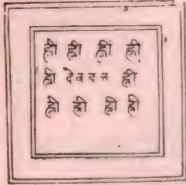 ह्रीं ह्रीं ह्रीं ह्रीं
ह्रीं देवदत्त ह्रीं
ह्रीं ह्रीं ह्रीं ह्रीं